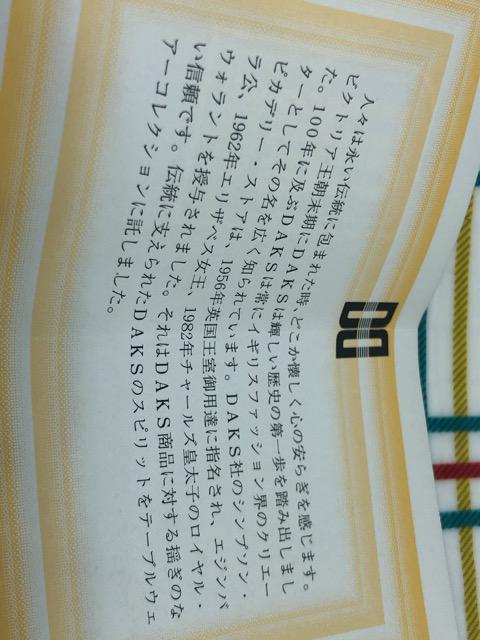 人々は永い伝統に包まれた時、どこか懐しく心の安らぎを感じます。
ビクトリア王朝末期にDAKSは輝しい歴史の第一歩を踏み出しまし
た。100年に及ぶDAKSは常にイギリスファッション界のクリエー
ターとしてその名を広く知られています。DAKS社のシンプソン・
ピカデリー・ストアは、1956年英国王室御用達に指名され、エジンバ
ラ公、1962年エリザベス女王、1982年チャールズ皇太子のロイヤル・
ウォラントを授与されました。それはDAKS商品に対する揺ぎのな
い信頼です。伝統に支えられたDAKSのスピリットをテーブルウェ
アーコレクションに託しました。